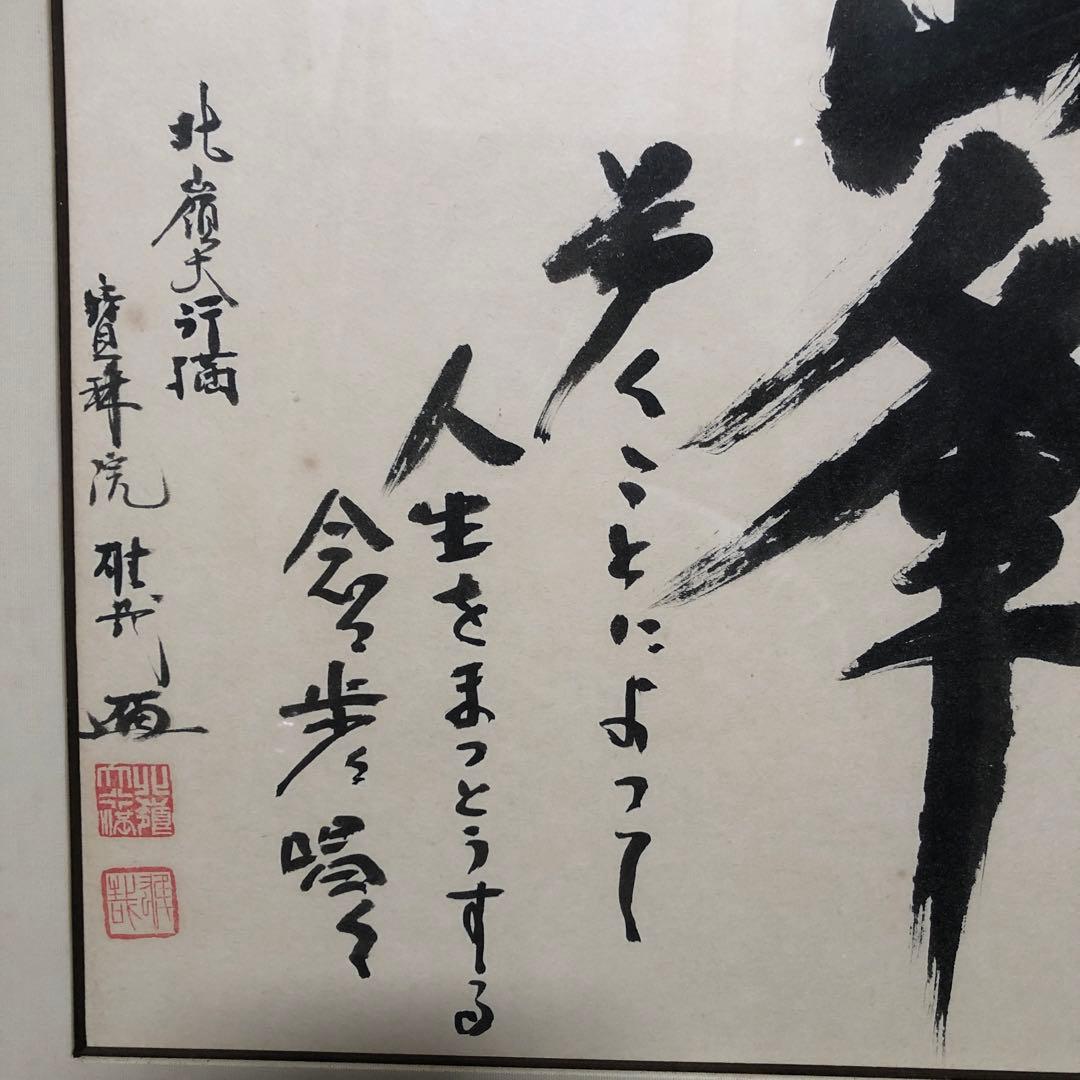 峯
歩くことによって
人生をまっとうする
念々歩々
北嶺大行満
寶珠院 雄哉